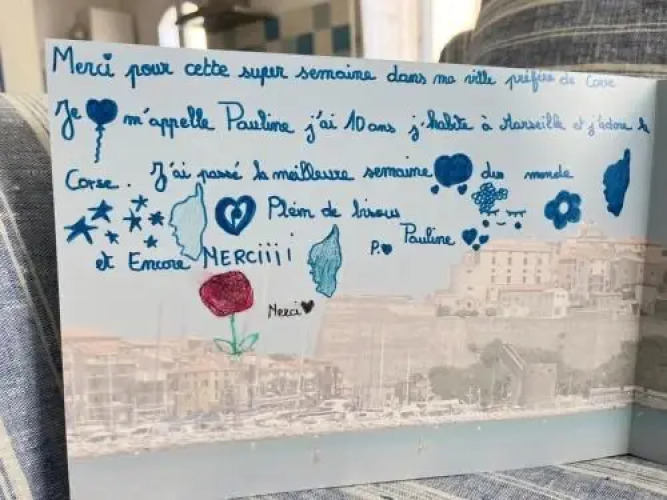 Merci pour cette super semaine dans ma ville préférée de Corse
Je m'appelle Pauline j'ai 10 ans j'habite à Marseille et j'adore la
Corse. J'ai passé la meilleure semaine du monde
Plein de bisous
P. Pauline
et Encore MERCiiii
Merci